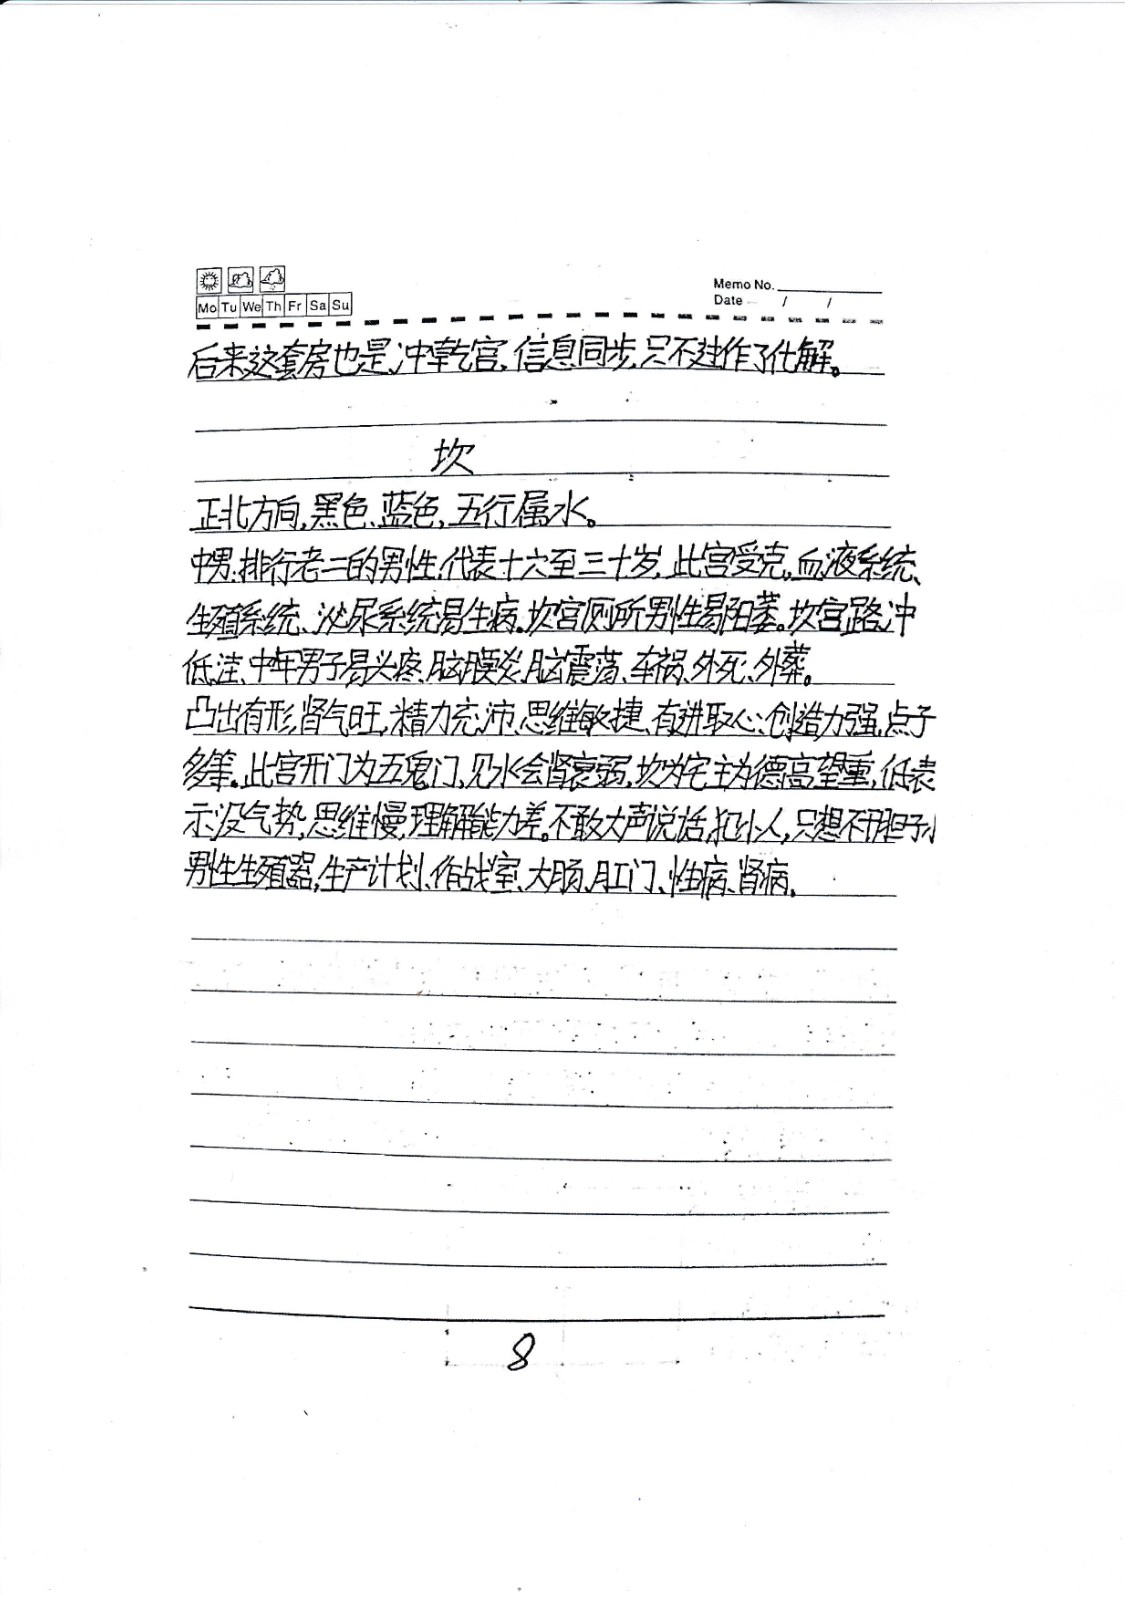 Memo No.
Mo Tu We Th Fr Sa Su
Date / /
后来这套房也是冲乾宫,信息同步,只不过作了化解。
坎
正北方向,黑色、蓝色,五行属水。
中男:排行老二的男性,代表十六至三十岁,此宫受克,血液系统、
生殖系统、泌尿系统易生病。坎宫厕所男性易阳萎。坎宫路冲
低洼、中年男子易头疼、脑膜炎、脑震荡、车祸、外死、外葬。
凸出有形,肾气旺,精力充沛,思维敏捷,有进取心,创造力强,点子
多等。此宫开门为五鬼门,见水会肾衰弱,坎为宅主为德高望重,低表
示没气势,思维慢,理解能力差。不敢大声说话,犯小人,只想不干胆子小
男性生殖器,生产计划、作战室、大肠、肛门、性病、肾病。
8